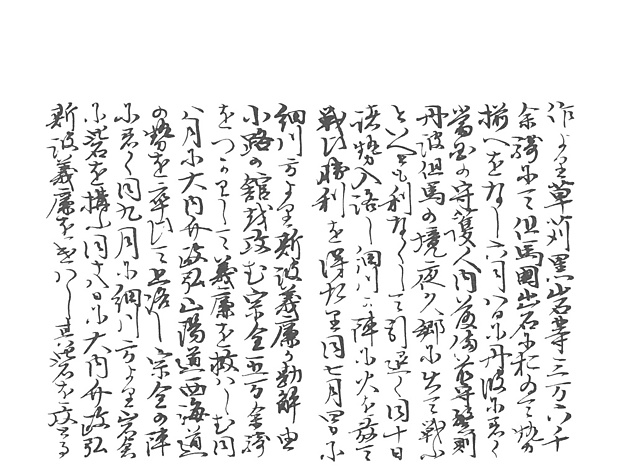 作より草苅黒岩等三万六千
余騎にて但馬国出石に於の
揃へをなし六月八日丹波に
当国の守護人内藤備前守
丹波但馬の境夜久郷に出て戦ふ
といへども利なくして引退く同十日
諸勢入洛し細川陣に火を放て
戦ひ勝利を得たり同七月
細川方より斯波義廉勘解由
小路の館を攻む宗全五万余騎
をつかはして義廉を救はしむ同
八月に大内政弘山陽道西海道
の勢を率ひて上洛し宗全の陣
に同九月に細川方より
に岩を構ふ同十八日に大内政弘
斯波義廉をつかはし其岩を攻